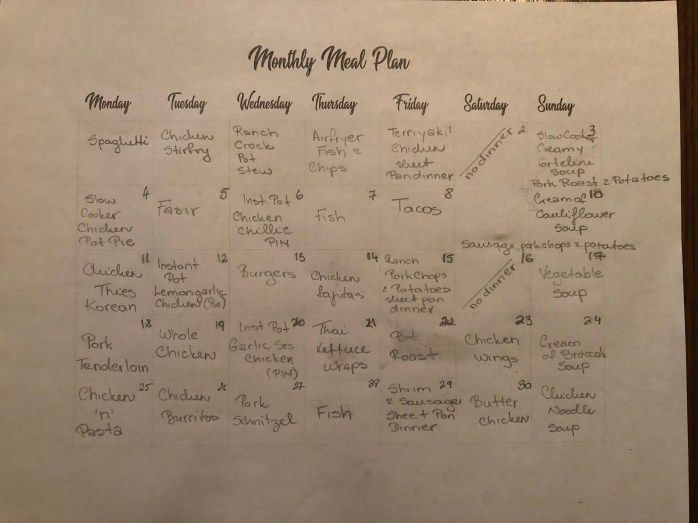 Monthly Meal Plan
Monday Tuesday Wednesday Thursday Friday Saturday Sunday
Spaghetti
Chicken
Stirfry
Ranch
Crock
Pot
Stew
Airfryer
Fish &
Chips
Terriyaki
Chicken
sheet
Pan dinner
2
no dinner
3
Slow Cooker
Creamy
Torteline
Soup
Pork Roast & Potatoes
4
Slow
Cooker
Chicken
Pot Pie
5
6
Inst. Pot
Chicken
Chillie
PIN
7
Fish
8
Tacos
10
Cream of
Cauliflower
Soup
Sausage, pork chops & potatoes
11
Chicken
Thies
Korean
12
Instant
Pot
Lemongarlic
Chicken (Pin)
13
Burgers
14
Chicken
fajitas
15
Ranch
Pork Chops
& Potatoes
sheet pan
dinner
16
no dinner
17
Vegetable
Soup
18
Pork
Tenderloin
19
Whole
Chicken
20
Inst Pot
Garlic Ses
Chicken
(PIN)
21
Thai
Lettuce
Wraps
22
Pot
Roast
23
Chicken
Wings
24
Cream
of Broccoli
Soup
25
Chicken
'n'
Pasta
26
Chicken
Burritos
27
Pork
Schnitzel
Fish
29
Shrim
& Sausage
Sheet Pan
Dinner
30
Butter
Chicken
Chicken
Noodle
Soup